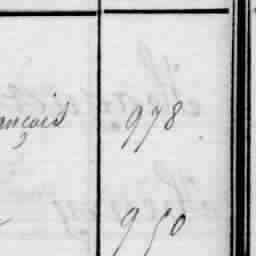 ançois 978
950